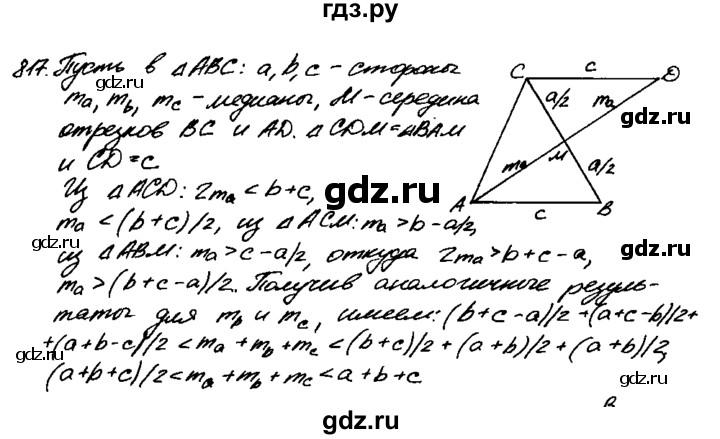 гдз.ру
817. Пусть в △ABC: a, b, c – стороны
mₐ, m_b, m_c – медианы, M – середина
отрезков BC и AD. △CDM = △BAM
и CD = c
Из △ACD: 2mₐ < b+c,
mₐ < (b+c)/2, из △ACM: mₐ > b-a/2,
из △ABM: mₐ > c-a/2, откуда 2mₐ > b+c-a,
mₐ > (b+c-a)/2. Получив аналогичные резуль-
таты для m_b и m_c, имеем: (b+c-a)/2 + (a+c-b)/2 +
+(a+b-c)/2 < mₐ + m_b + m_c < (b+c)/2 + (a+b)/2 + (a+b)/2,
(a+b+c)/2 < mₐ + m_b + m_c < a+b+c
C c D
a/2 mₐ
mₐ M a/2
A c B
gdz.ru
gdz.ru
gdz.ru
gdz.ru
gdz.ru
gdz.ru
gdz.ru
gdz.ru
gdz.ru